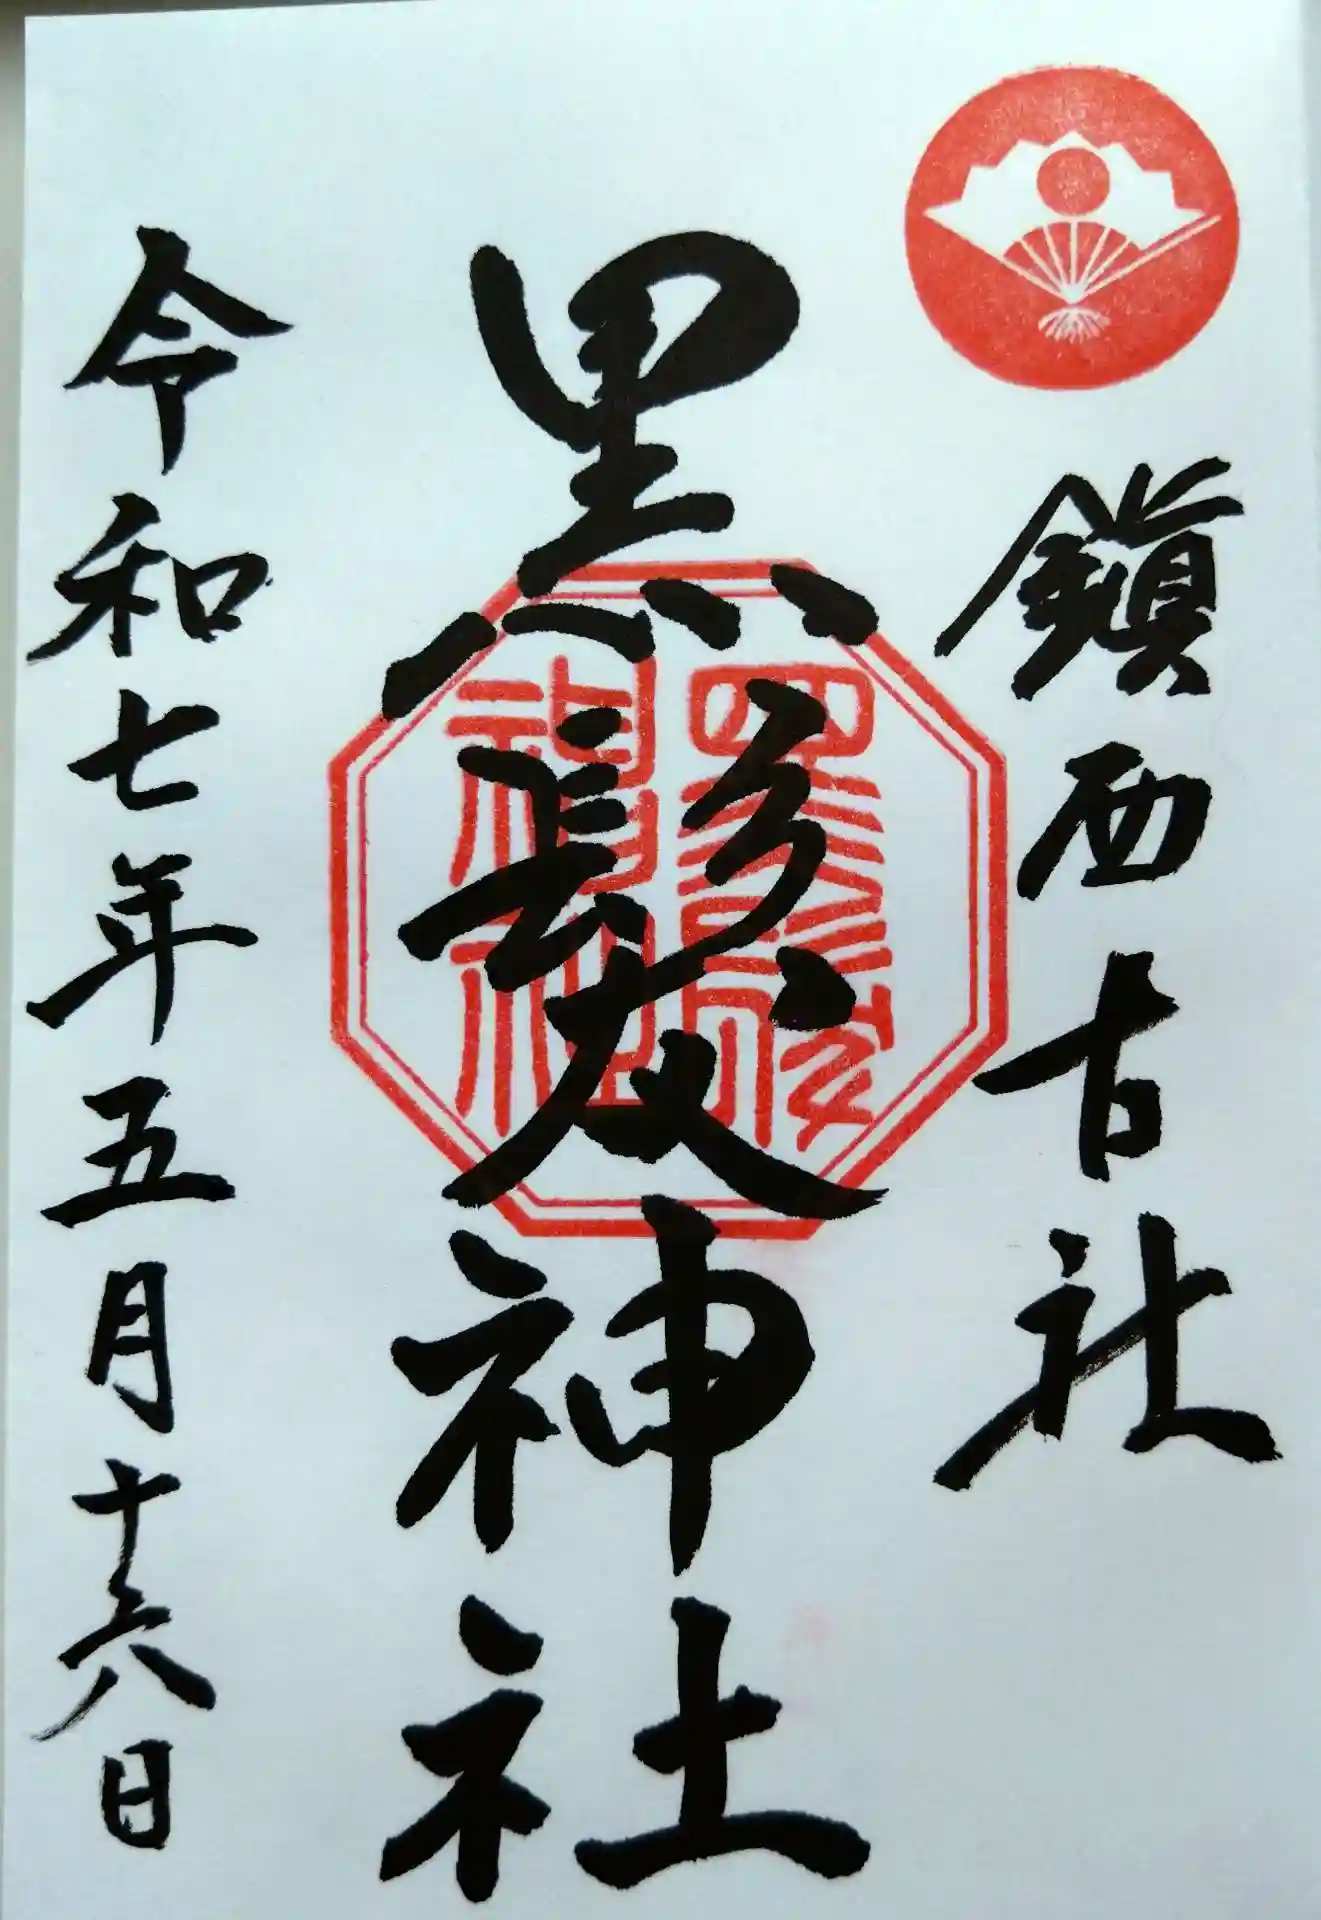 鎮西古社
黒髪神社
令和七年五月十六日
黒髪
神社